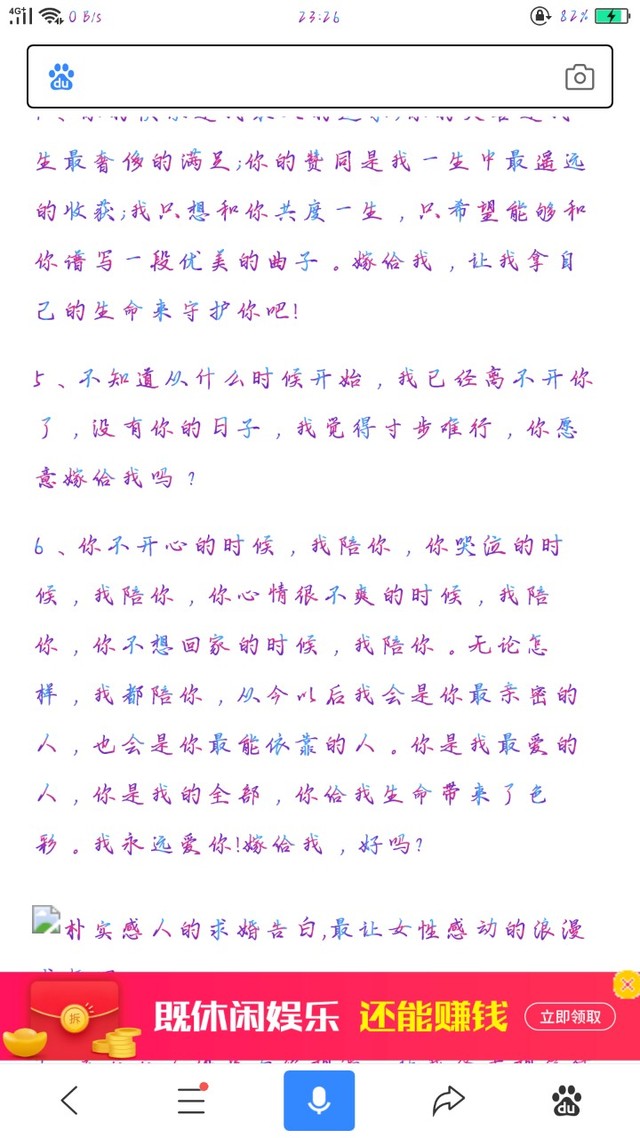 4G+ 0 B/s 23:26 82%
du
生最奢侈的满足;你的赞同是我一生中最遥远
的收获;我只想和你共度一生，只希望能够和
你谱写一段优美的曲子。嫁给我，让我拿自
己的生命来守护你吧!
5、不知道从什么时候开始，我已经离不开你
了，没有你的日子，我觉得寸步难行，你愿
意嫁给我吗？
6、你不开心的时候，我陪你，你哭泣的时
候，我陪你，你心情很不爽的时候，我陪
你，你不想回家的时候，我陪你。无论怎
样，我都陪你，从今以后我会是你最亲密的
人，也会是你最能依靠的人。你是我最爱的
人，你是我的全部，你给我生命带来了色
彩。我永远爱你!嫁给我，好吗?
朴实感人的求婚告白,最让女性感动的浪漫
拆 既休闲娱乐 还能赚钱 立即领取
du